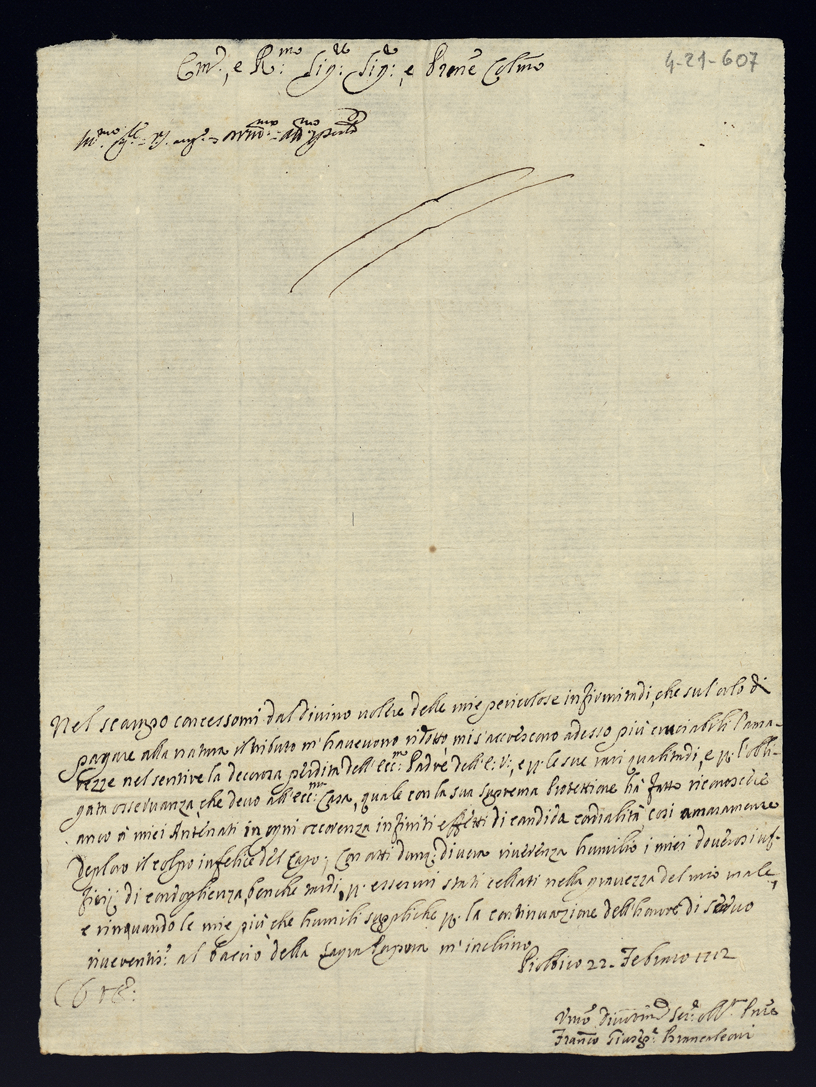 Em.º, e R.mo Sig.re Sig.re, e Prone Colmo
4-21-607
Nel scampo concessomi dal divino volere delle mie pericolose infirmitadi, che sul orlo di
pagare alla natura il tributo m'havevono ridotto mi s'accrescono adesso più cruciabili l'ama-
rezze nel sentire la decorosa perdita dell'Ecc.mo Padre dell'E: V:, e p. le sue rari qualitadi, e p. l'obli-
gata osservanza che devo all'Ecc.ma Casa, quale con la sua suprema Protettione hà fatto riconoscere
anco à miei Antenati in ogni occorenza infiniti effetti di candida cordialità così amaramente
deploro il colpo infelice del Capo; Con atti dunq. di vera riverenza humilio i miei doverosi uf-
fizij di condoglienza, benche tardi, p. essermi stati cellati nella gravezza del mio male,
e rinovando le mie più che humili suppliche p. la continuazione dell'honore di suo
riverentis.º al baccio della Sagra Porpora m'inchino
Piobbico 22. Febraro 1712
Vmo Divotmo Ser.e Obl.mo
Franco Brancaleoni